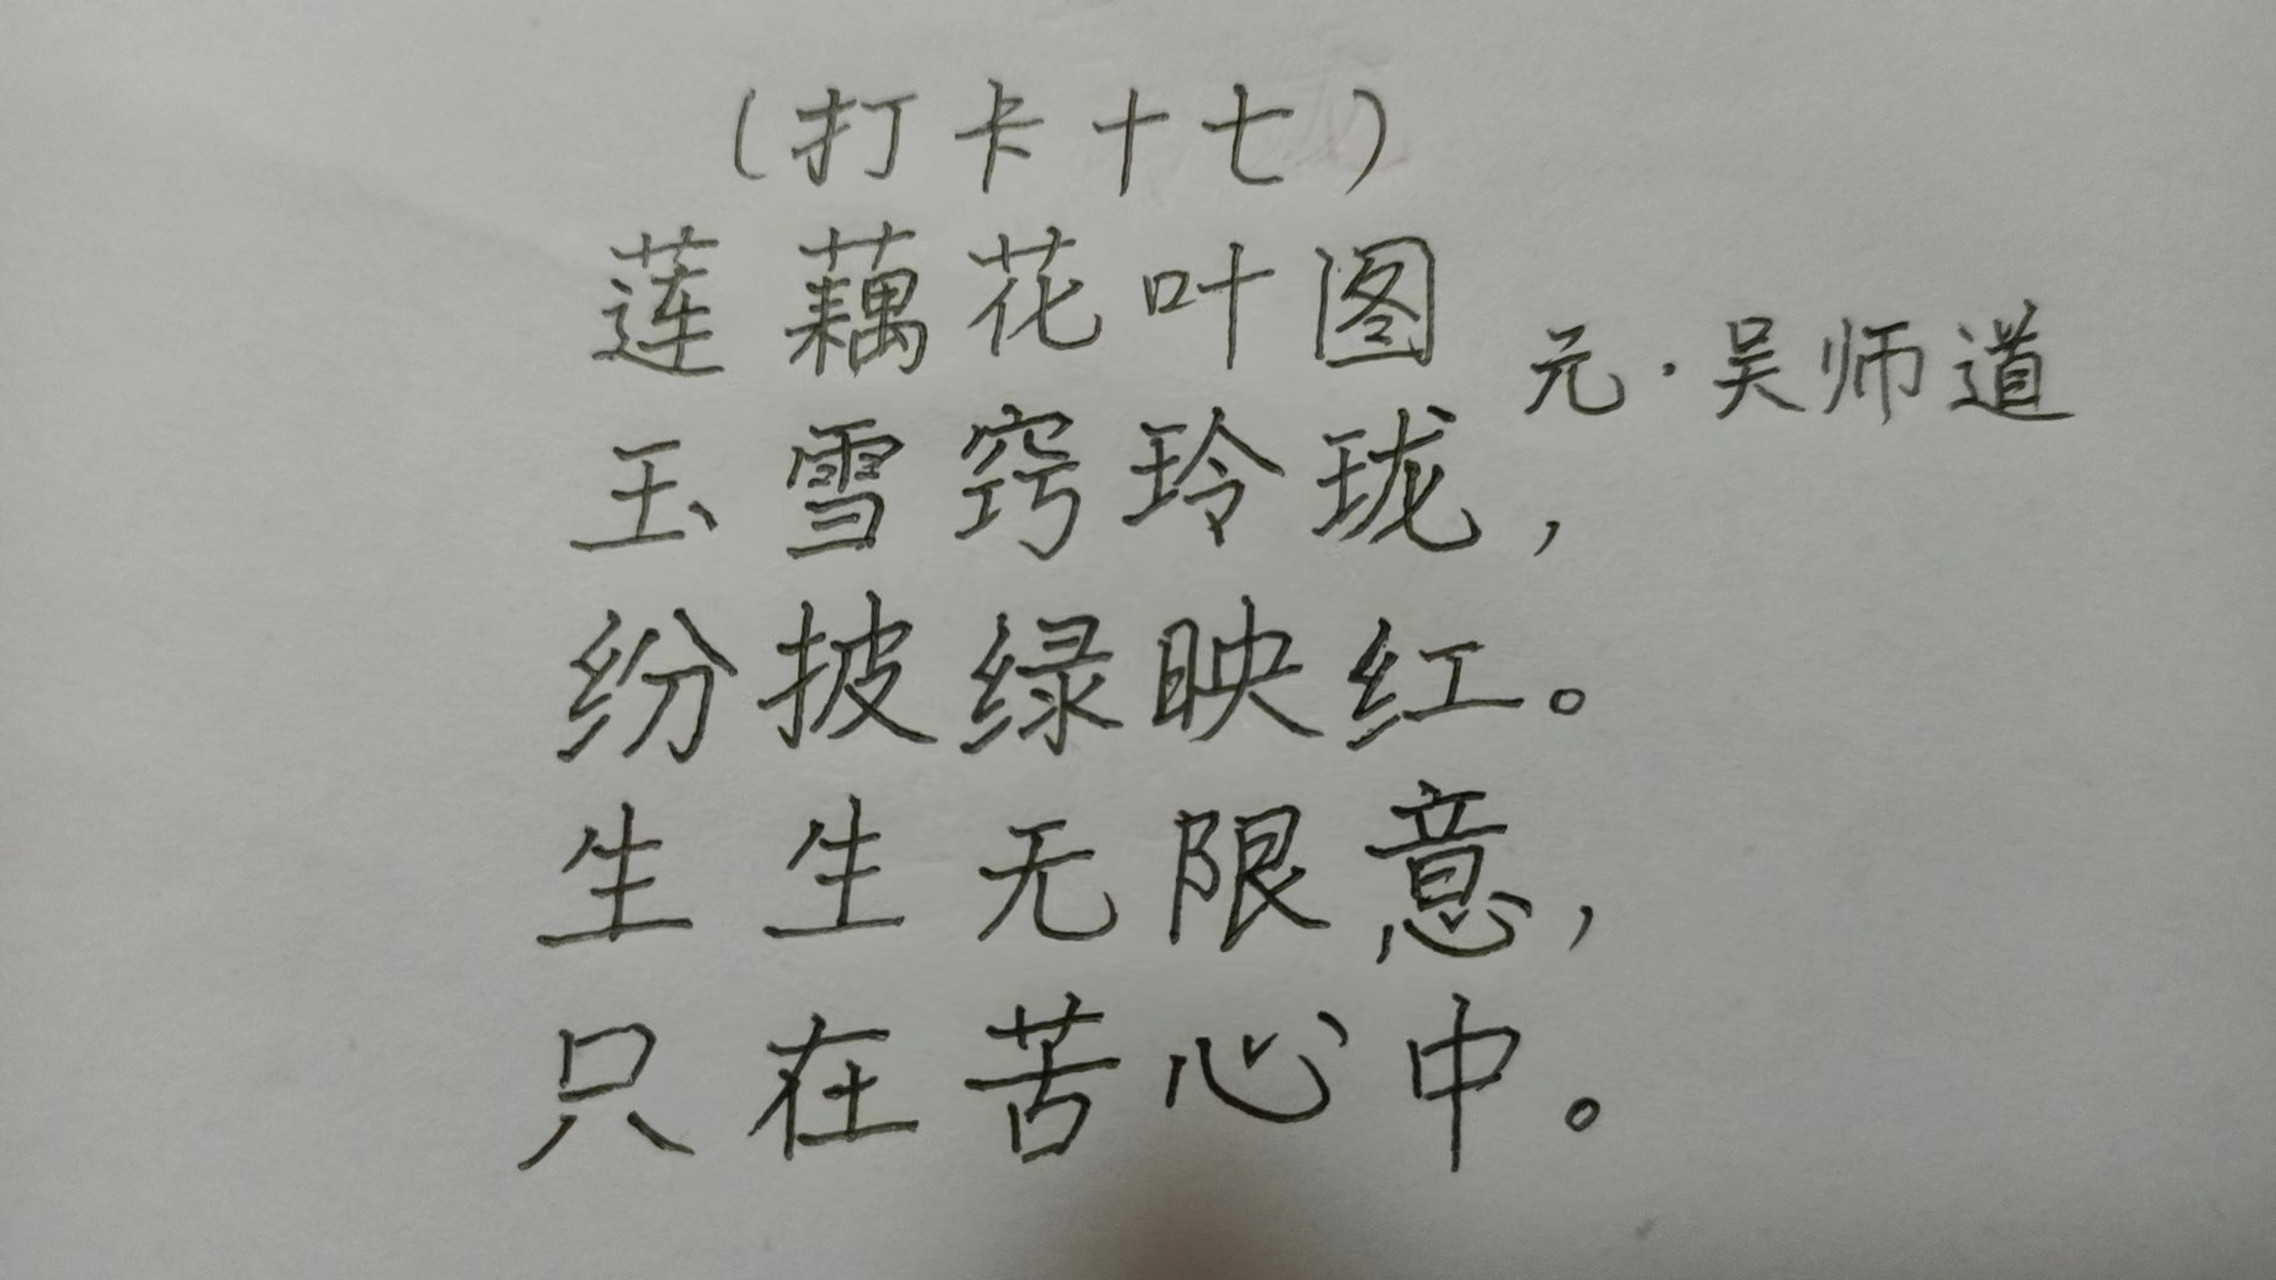 (打卡十七)
莲藕花叶图
元·吴师道
玉雪窍玲珑，
纷披绿映红。
生生无限意，
只在苦心中。